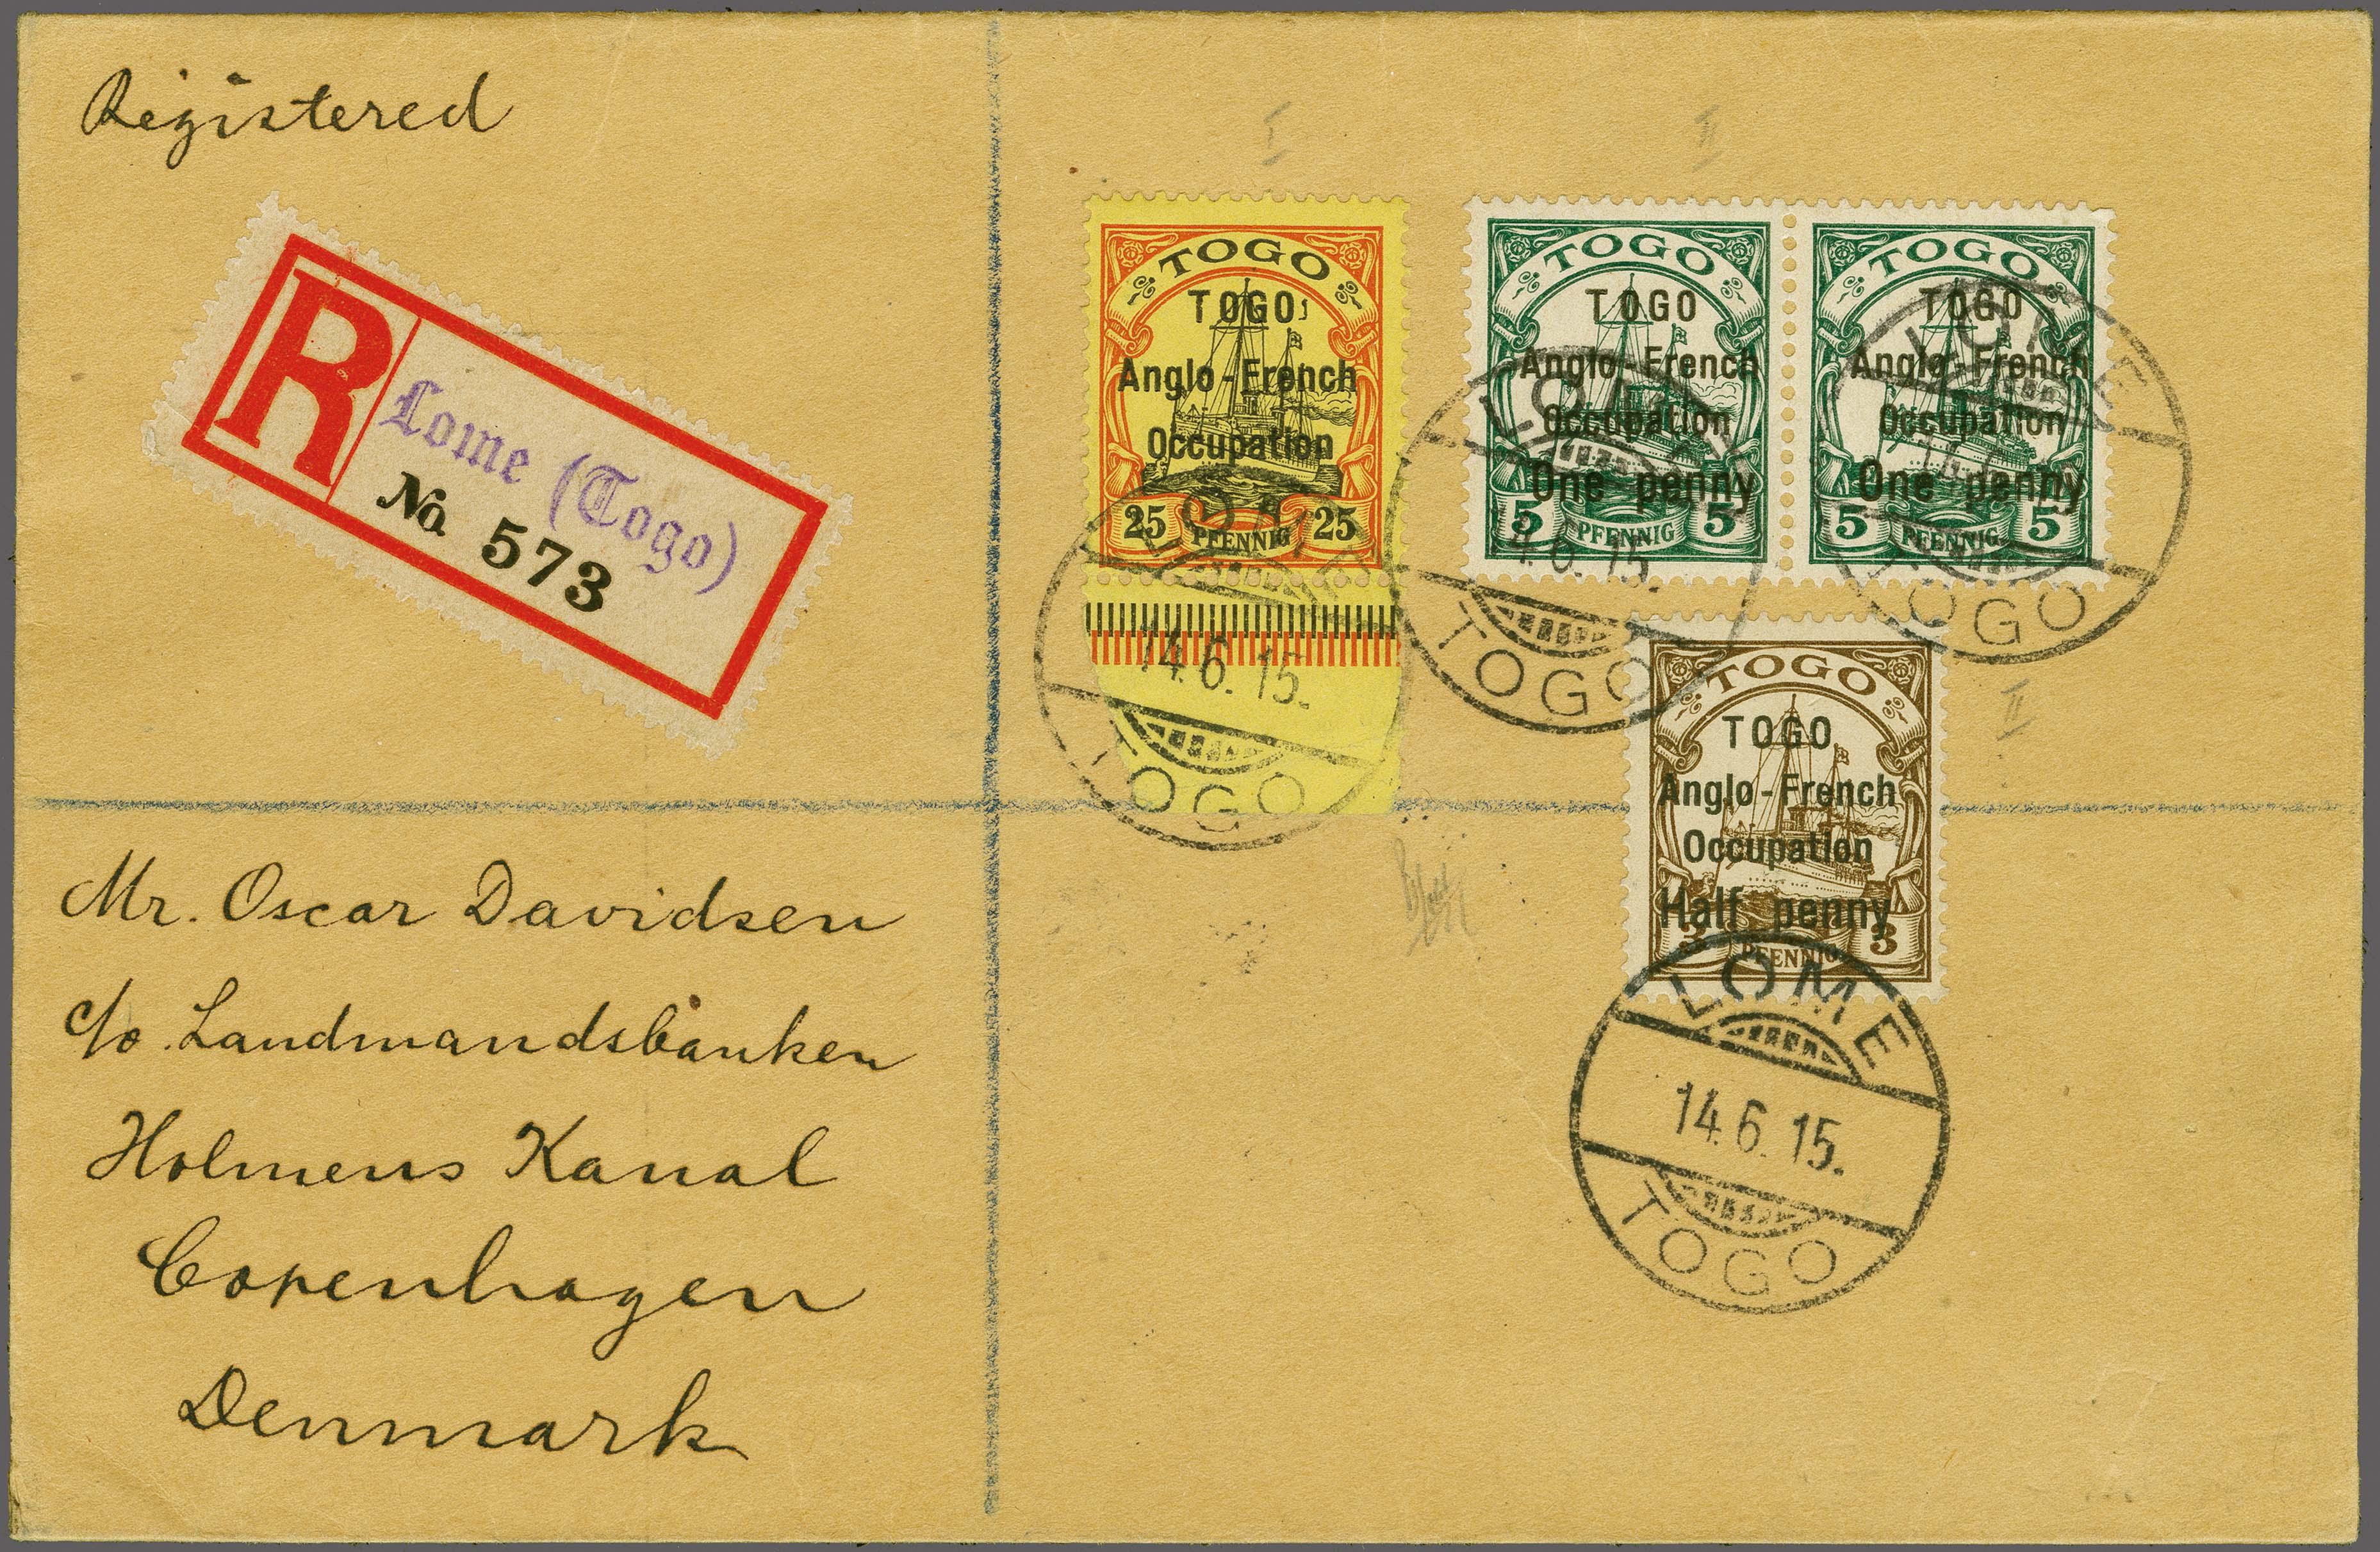 Registered
R
Lome (Togo)
No. 573
Mr. Oscar Davidsen
c/o. Landmandsbanken
Holmens Kanal
Copenhagen
Denmark
I
TOGO
TOGO
Anglo-French
Occupation
25 PFENNIG 25
LOME
14.6.15.
TOGO
II
TOGO
TOGO
Anglo-French
Occupation
One penny
5 PFENNIG 5
LOME
14.6.15.
TOGO
TOGO
TOGO
Anglo-French
Occupation
One penny
5 PFENNIG 5
LOME
TOGO
II
TOGO
TOGO
Anglo-French
Occupation
Half penny
3 PFENNIG 3
LOME
14.6.15.
TOGO